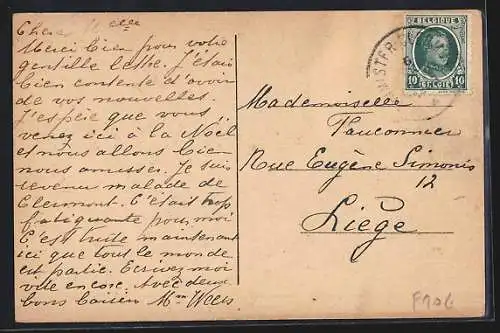 Chère Melle
Merci bien pour votre
gentille lettre. J'étais
bien contente d'avoir
de vos nouvelles.
J'espère que vous
venez ici à la Noël
et nous allons bien
nous amuser. Je suis
revenu malade de
Clermont. C'était trop
fatiguante pour moi
C'est triste maintenant
ici que tous le monde
est partie. Ecrivez moi
vite encore. Avec deux
bons baisers Mme Wees
BELGIQUE
10 BELGIË 10
Mademoiselle
Fauconnier
Rue Eugène Simonis
12
Liège